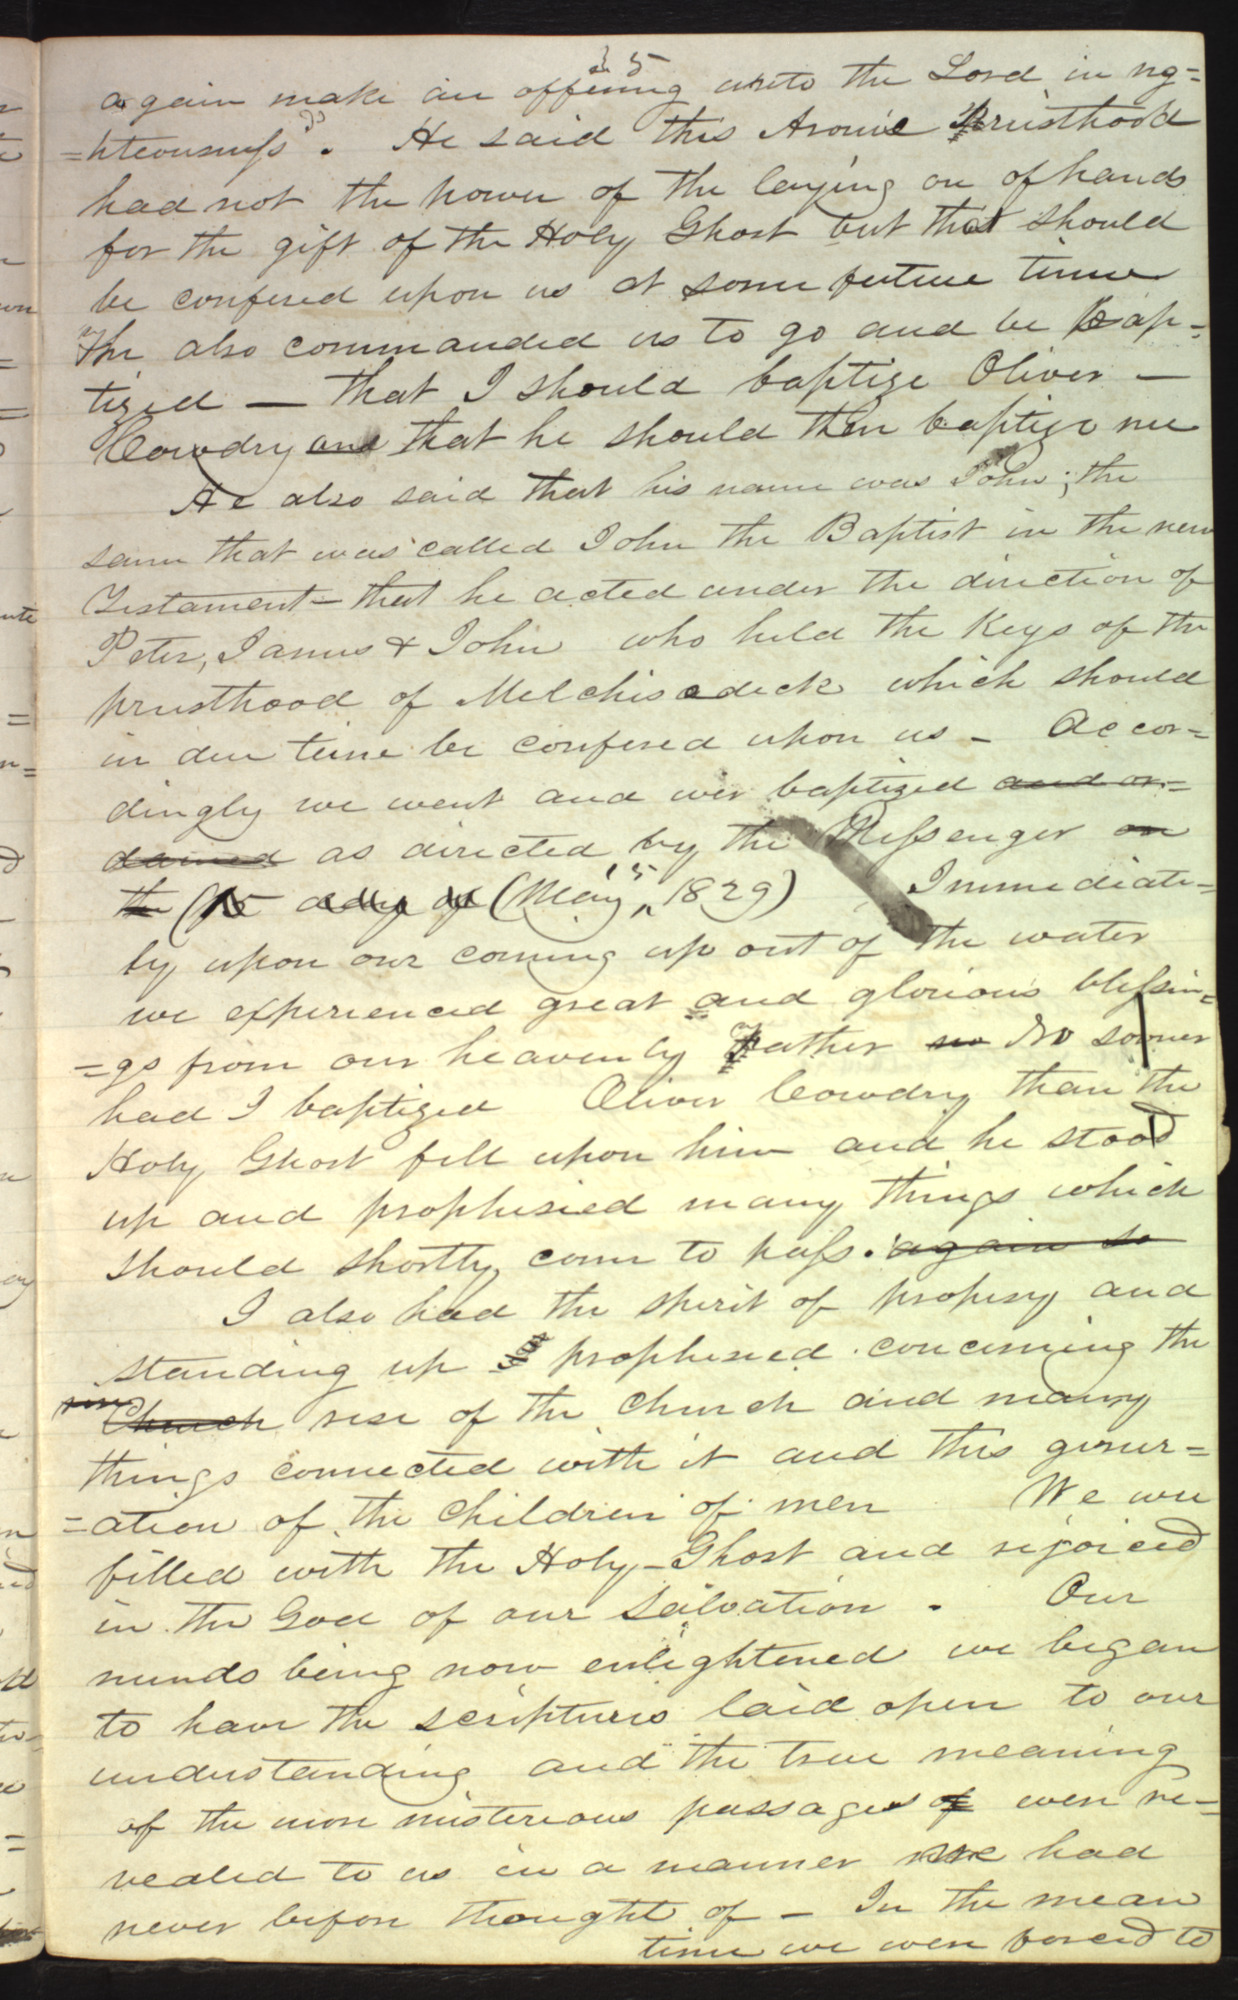 35
again make an offering unto the Lord in rig=
=hteousness". He said this Aronic Priesthood
had not the power of the laying on of hands
for the gift of the Holy Ghost but that should
be confered upon us at some future time
he also commanded us to go and be bap-
tized — that I should baptize Oliver —
Cowdry and that he should then baptize me
He also said that his name was John; the
same that was called John the Baptist in the new
Testament — that he acted under the direction of
Peter, James & John who held the Keys of the
priesthood of Melchisedeck which should
in due time be confered upon us — Accor=
dingly we went and wer baptized and or=
dained as directed by the Messenger on
the (15 (May 15, 1829) Immediate=
ly upon our coming up out of the water
we experienced great and glorious blessin=
=gs from our heavenly Father no No sooner
had I baptized Oliver Cowdry than the
Holy Ghost fell upon him and he stood
up and prophesied many things which
should shortly come to pass. again so
I also had the spirit of propesy and
standing up prophesied concerning the
Church rise of the church and many
things connected with it and this gener=
=ation of the children of men We wee
filled with the Holy-Ghost and rejoiced
in the God of our salvation. Our
minds being now enlightened we began
to have the scriptures laid open to our
understanding and the true meaning
of the more misterious passages of were re=
vealed to us in a manner we had
never before thought of — In the mean
time we were forced to